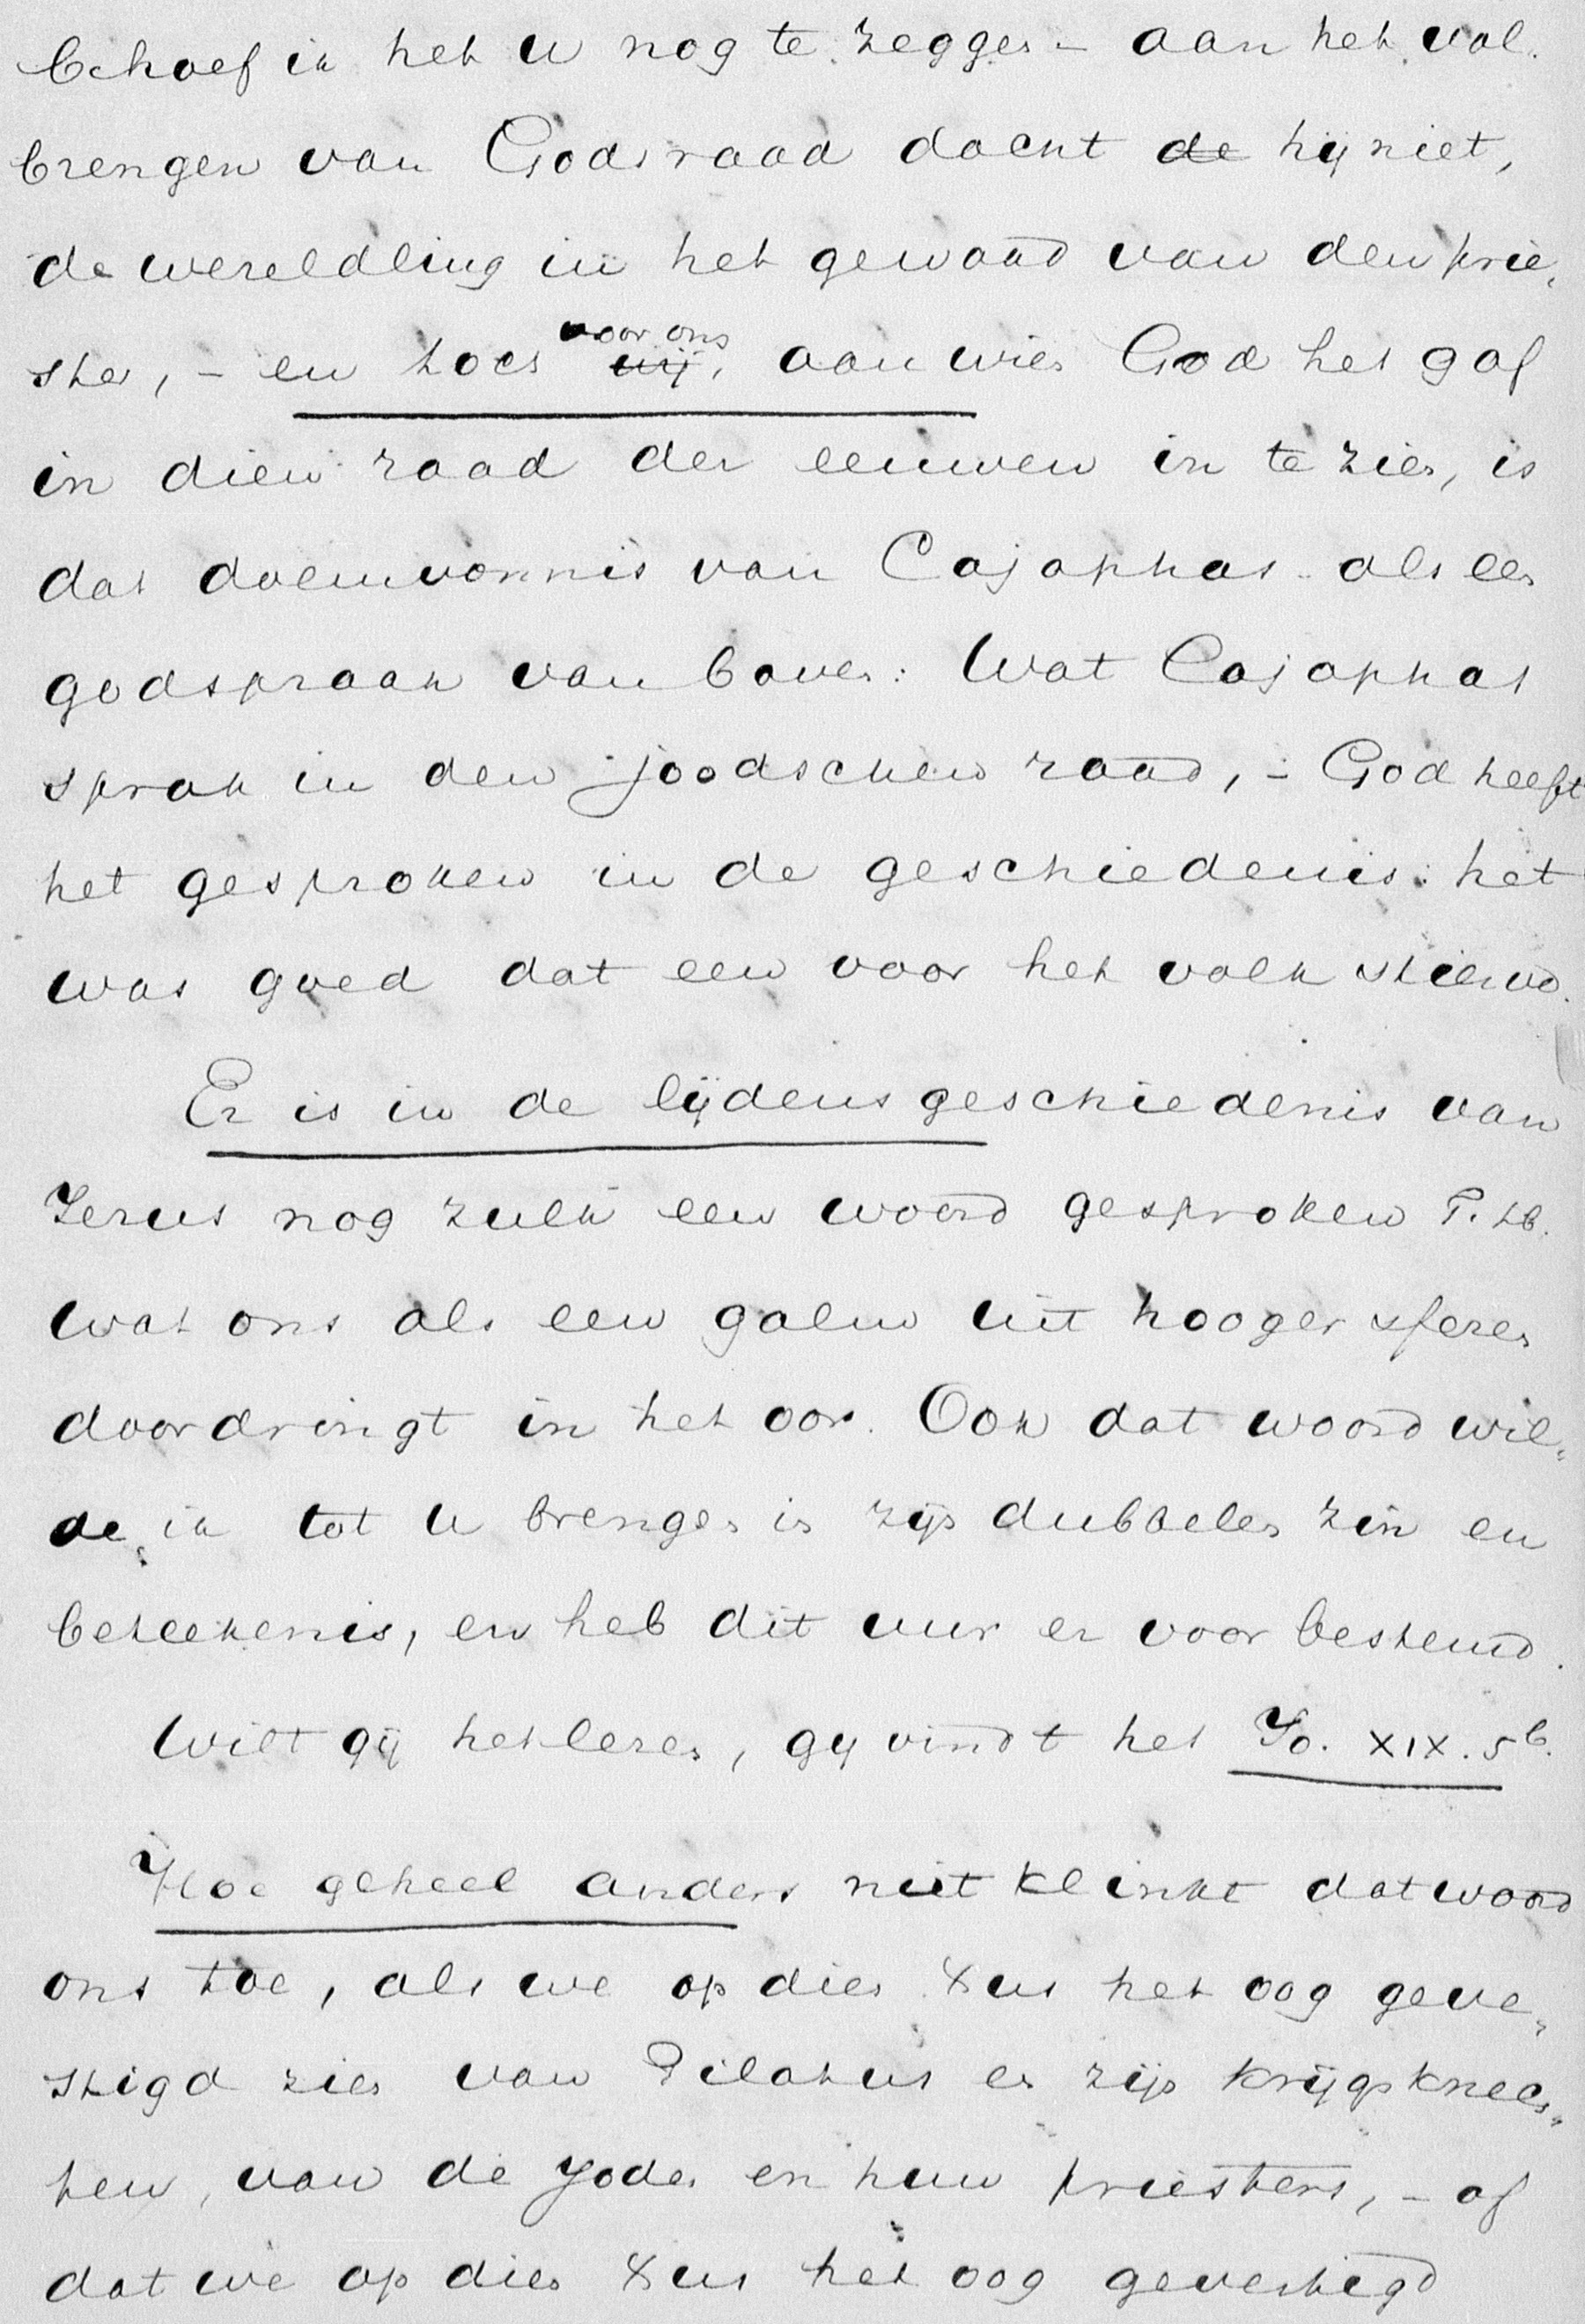 behoef ik het u nog te zeggen – aan het vol-
brengen van Gods raad dacht de hij niet,
de wereldling in het gewaad van den prie-
ster, – en toch voor ons wij, aan wien God het gaf
in dien raad der eeuwen in te zien, is
dat doemvonnis van Cajaphas als een
godspraak van boven: Wat Cajaphas
sprak in den joodschen raad, – God heeft
het gesproken in de geschiedenis: het
was goed dat een voor het volk stierve.
Er is in de lijdensgeschiedenis van
Jezus nog zulk een woord gesproken T. H.
wat ons als een galm uit hooger sferen
doordringt in het oor. Ook dat woord wil-
de ik tot u brengen in zijn dubbelen zin en
beteekenis, en heb dit uur er voor bestemd.
Wilt gij het lezen, gij vindt het Jo. XIX. 5b.
Hoe geheel anders niet klinkt dat woord
ons toe, als we op dien Xus het oog geve-
stigd zien van Pilatus en zijn krijgsknech-
ten, van de Joden en hun priesters, – of
dat we op dien Xus het oog gevestigd